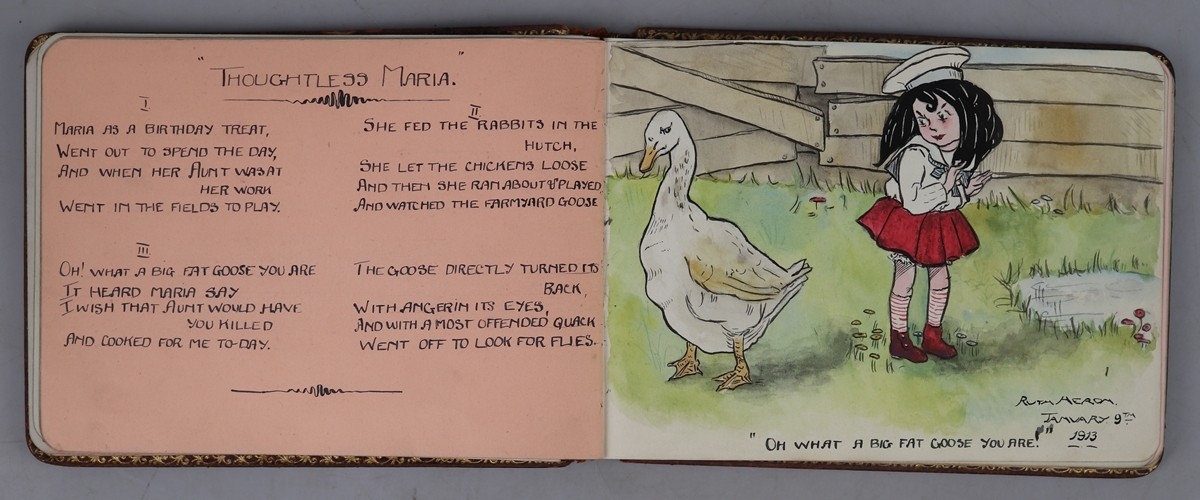 "THOUGHTLESS MARIA."
I
MARIA AS A BIRTHDAY TREAT,
WENT OUT TO SPEND THE DAY,
AND WHEN HER AUNT WAS AT
HER WORK
WENT IN THE FIELDS TO PLAY.
II
SHE FED THE RABBITS IN THE
HUTCH,
SHE LET THE CHICKENS LOOSE
AND THEN SHE RAN ABOUT & PLAYED,
AND WATCHED THE FARMYARD GOOSE
III
OH! WHAT A BIG FAT GOOSE YOU ARE
IT HEARD MARIA SAY
I WISH THAT AUNT WOULD HAVE
YOU KILLED
AND COOKED FOR ME TO-DAY.
THE GOOSE DIRECTLY TURNED ITS
BACK,
WITH ANGER IN ITS EYES,
AND WITH A MOST OFFENDED QUACK
WENT OFF TO LOOK FOR FLIES.
RUTH HERON.
JANUARY 9TH
1913
"OH WHAT A BIG FAT GOOSE YOU ARE!"